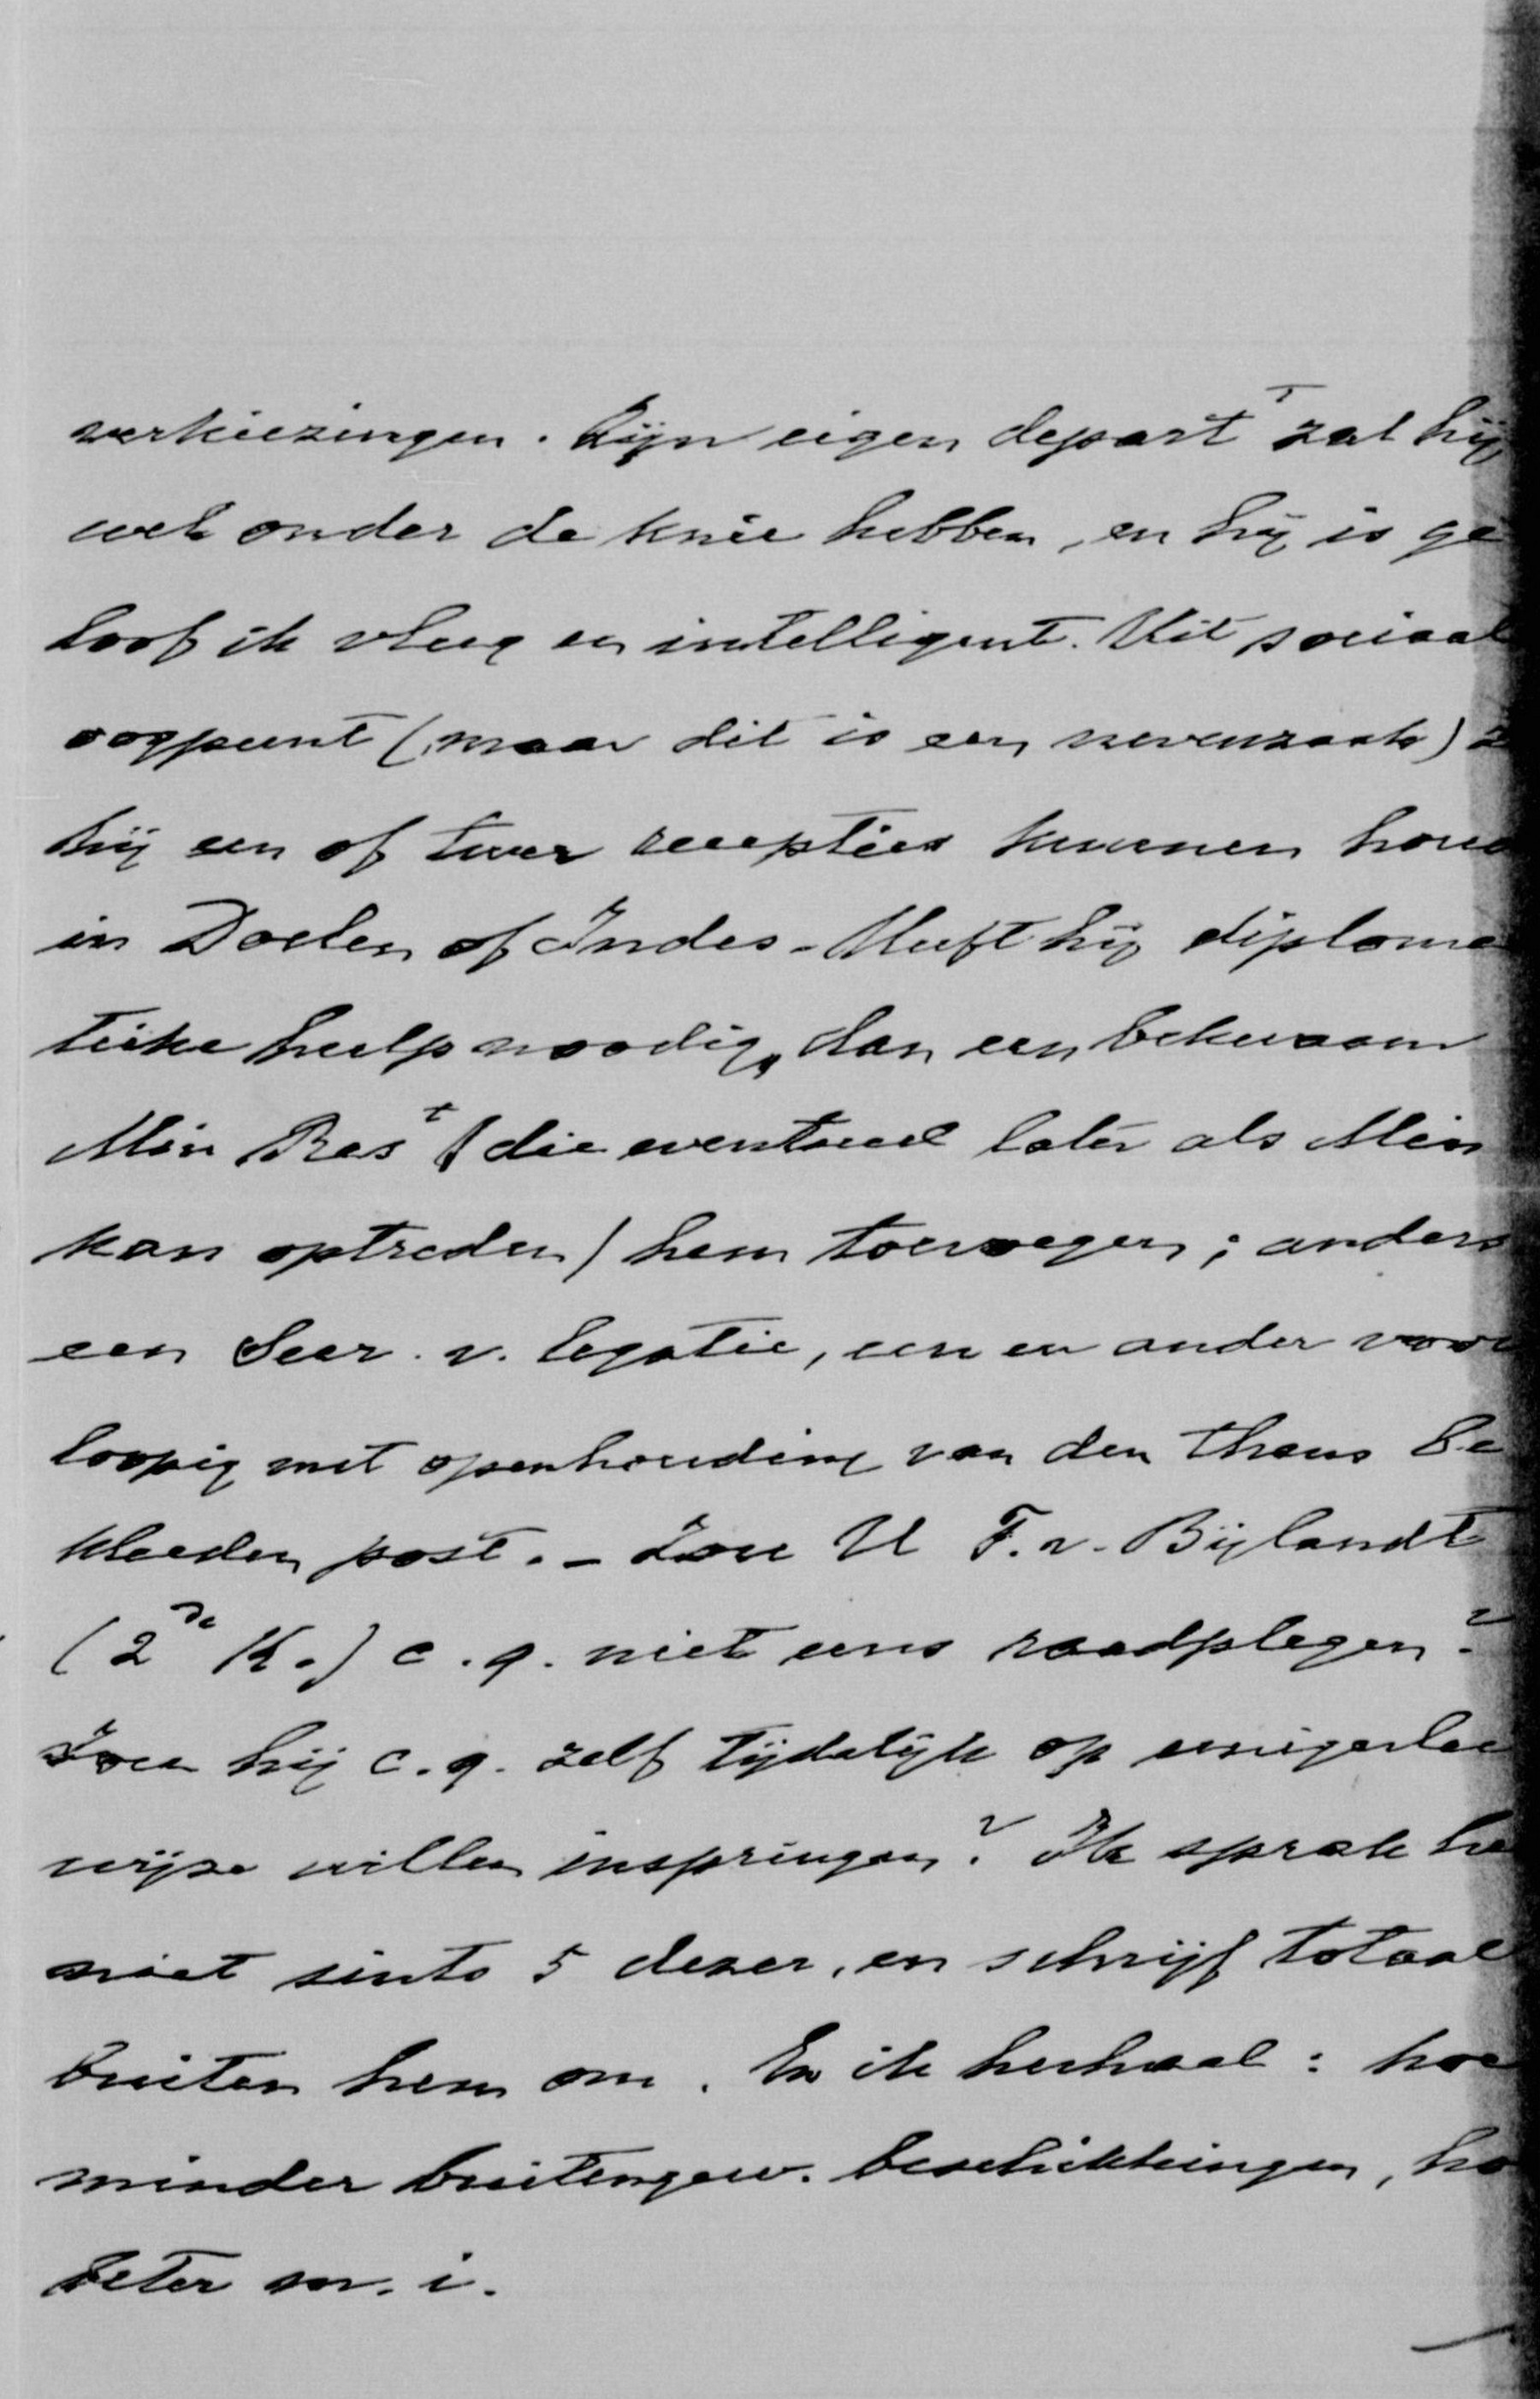 verkiezingen. Zijn eigen depart<sup>t</sup> zal hij
wel onder de knie hebben, en hij is ge
loof ik vlug en intelligent. Uit sociaal
oogpunt (maar dit is een nevenzaak) z
hij een of twee recepties kunnen houd
in Doelen of Indes. Heeft hij diploma
tieke hulp noodig, dan een bekwaam
Min Res<sup>t</sup> (die eventueel later als Min
kan optreden) hem toevoegen; anders
een Secr. v. legatie, een en ander voor
loopig met openhouding van den thans be
kleeden post. – Zou U F. v. Bijlandt
(2<sup>de</sup> K.) c.q. niet eens raadplegen?
Zou hij c.q. zelf tijdelijk op eenigerlei
wijze willen inspringen? Ik sprak he
niet sints 5 dezer, en schrijf totaal
buiten hem om. En ik herhaal: hoe
minder buitengew. beschikkingen, ho
beter m.i.